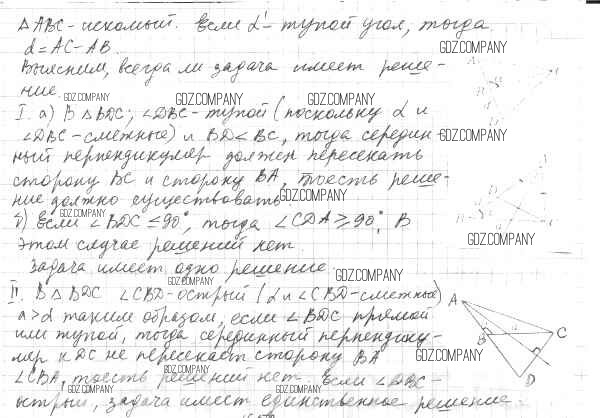 △ABC - искомый. Если α - тупой угол, тогда
d = AC - AB.
GDZ.COMPANY
Выясним, всегда ли задача имеет реше-
ние.
GDZ.COMPANY GDZ.COMPANY GDZ.COMPANY
I. а) В △BDC; ∠DBC - тупой (поскольку α и
∠DBC - смежные) и BD < BC, тогда середин-
GDZ.COMPANY
ный перпендикуляр должен пересекать
сторону BC и сторону BA, тоесть реше-
ние должно существовать.
GDZ.COMPANY
GDZ.COMPANY
Если ∠BDC = 90°, тогда ∠CDA ≥ 90°, В
GDZ.COMPANY
этом случае решений нет.
Задача имеет одно решение.
GDZ.COMPANY
GDZ.COMPANY
II. В △BDC ∠CBD - острый (α и ∠CBD - смежные)
a > α таким образом, если ∠BDC прямой
или тупой, тогда серединный перпендику-
ляр к DC не пересекает сторону BA
GDZ.COMPANY
∠CBA, тоесть решений нет. Если ∠DBC -
GDZ.COMPANY
GDZ.COMPANY GDZ.COMPANY
острый, задача имеет единственное решение
A
B
a
C
D